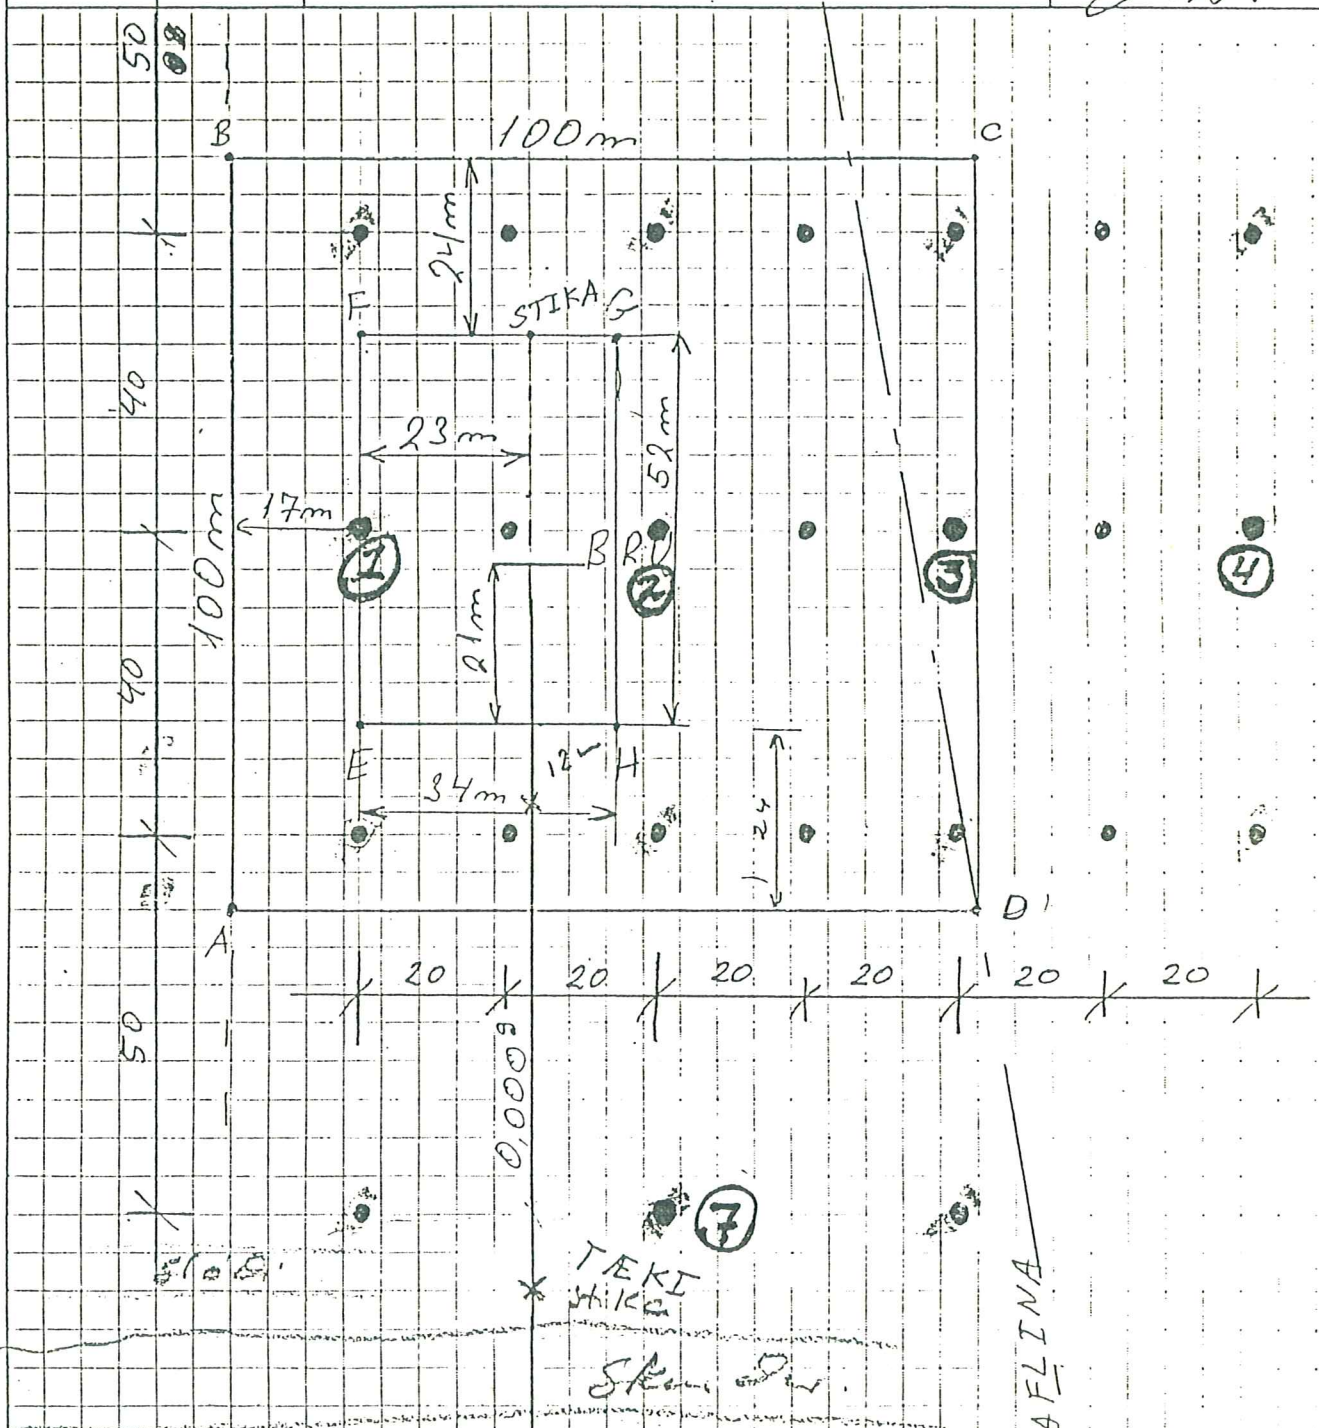 50
B
100m
C
24m
F
STIKA G
40
23m
52m
17m
100m
1
BRU
2
3
4
21m
40
E
12
H
34m
24
A
D
20 20 20 20 20 20
50
0,000g
7
TÆKI
stika
AFLINA